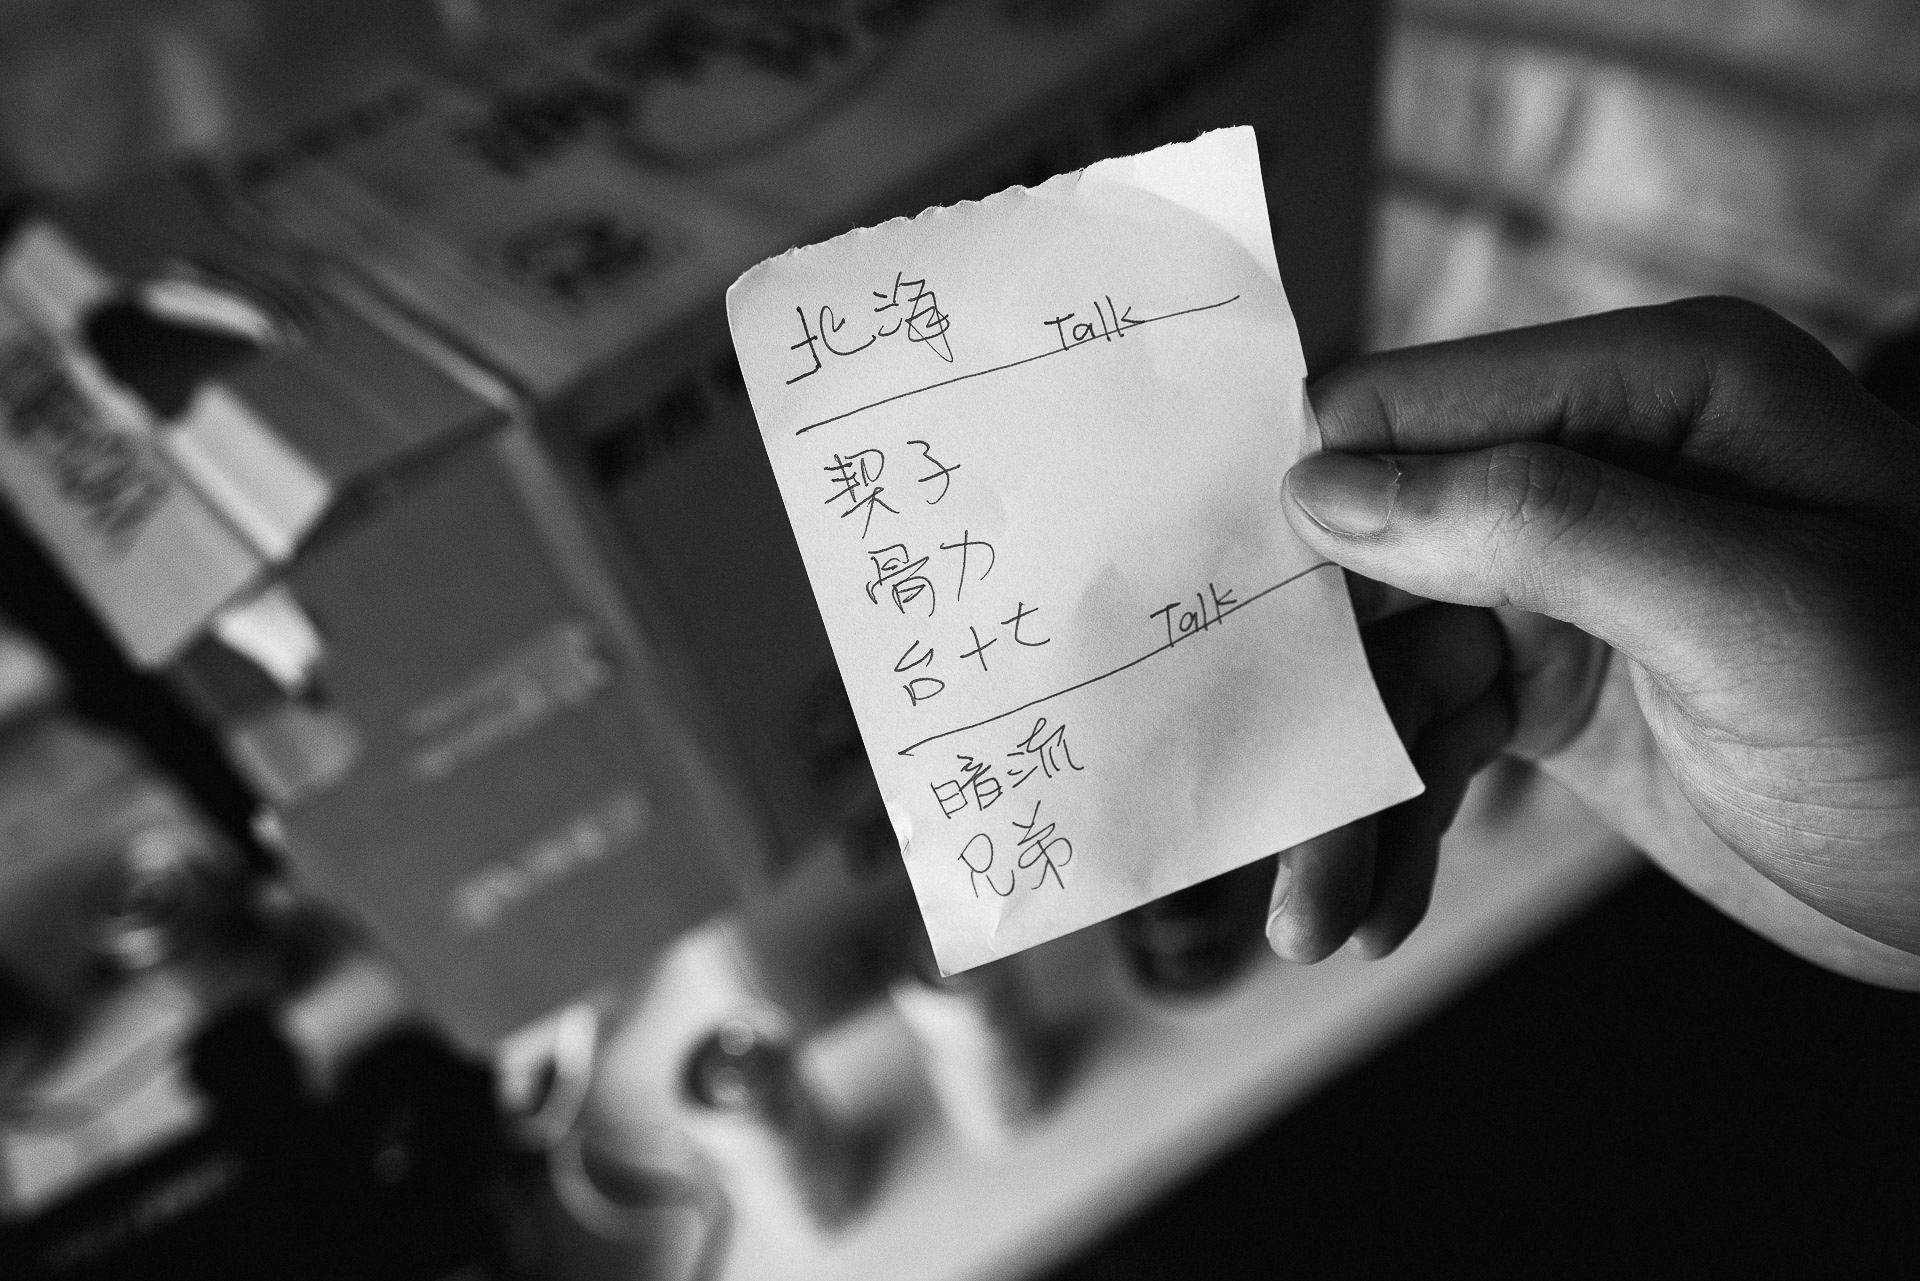 北海
Talk
契子
骨力
台十七
Talk
暗流
兄弟